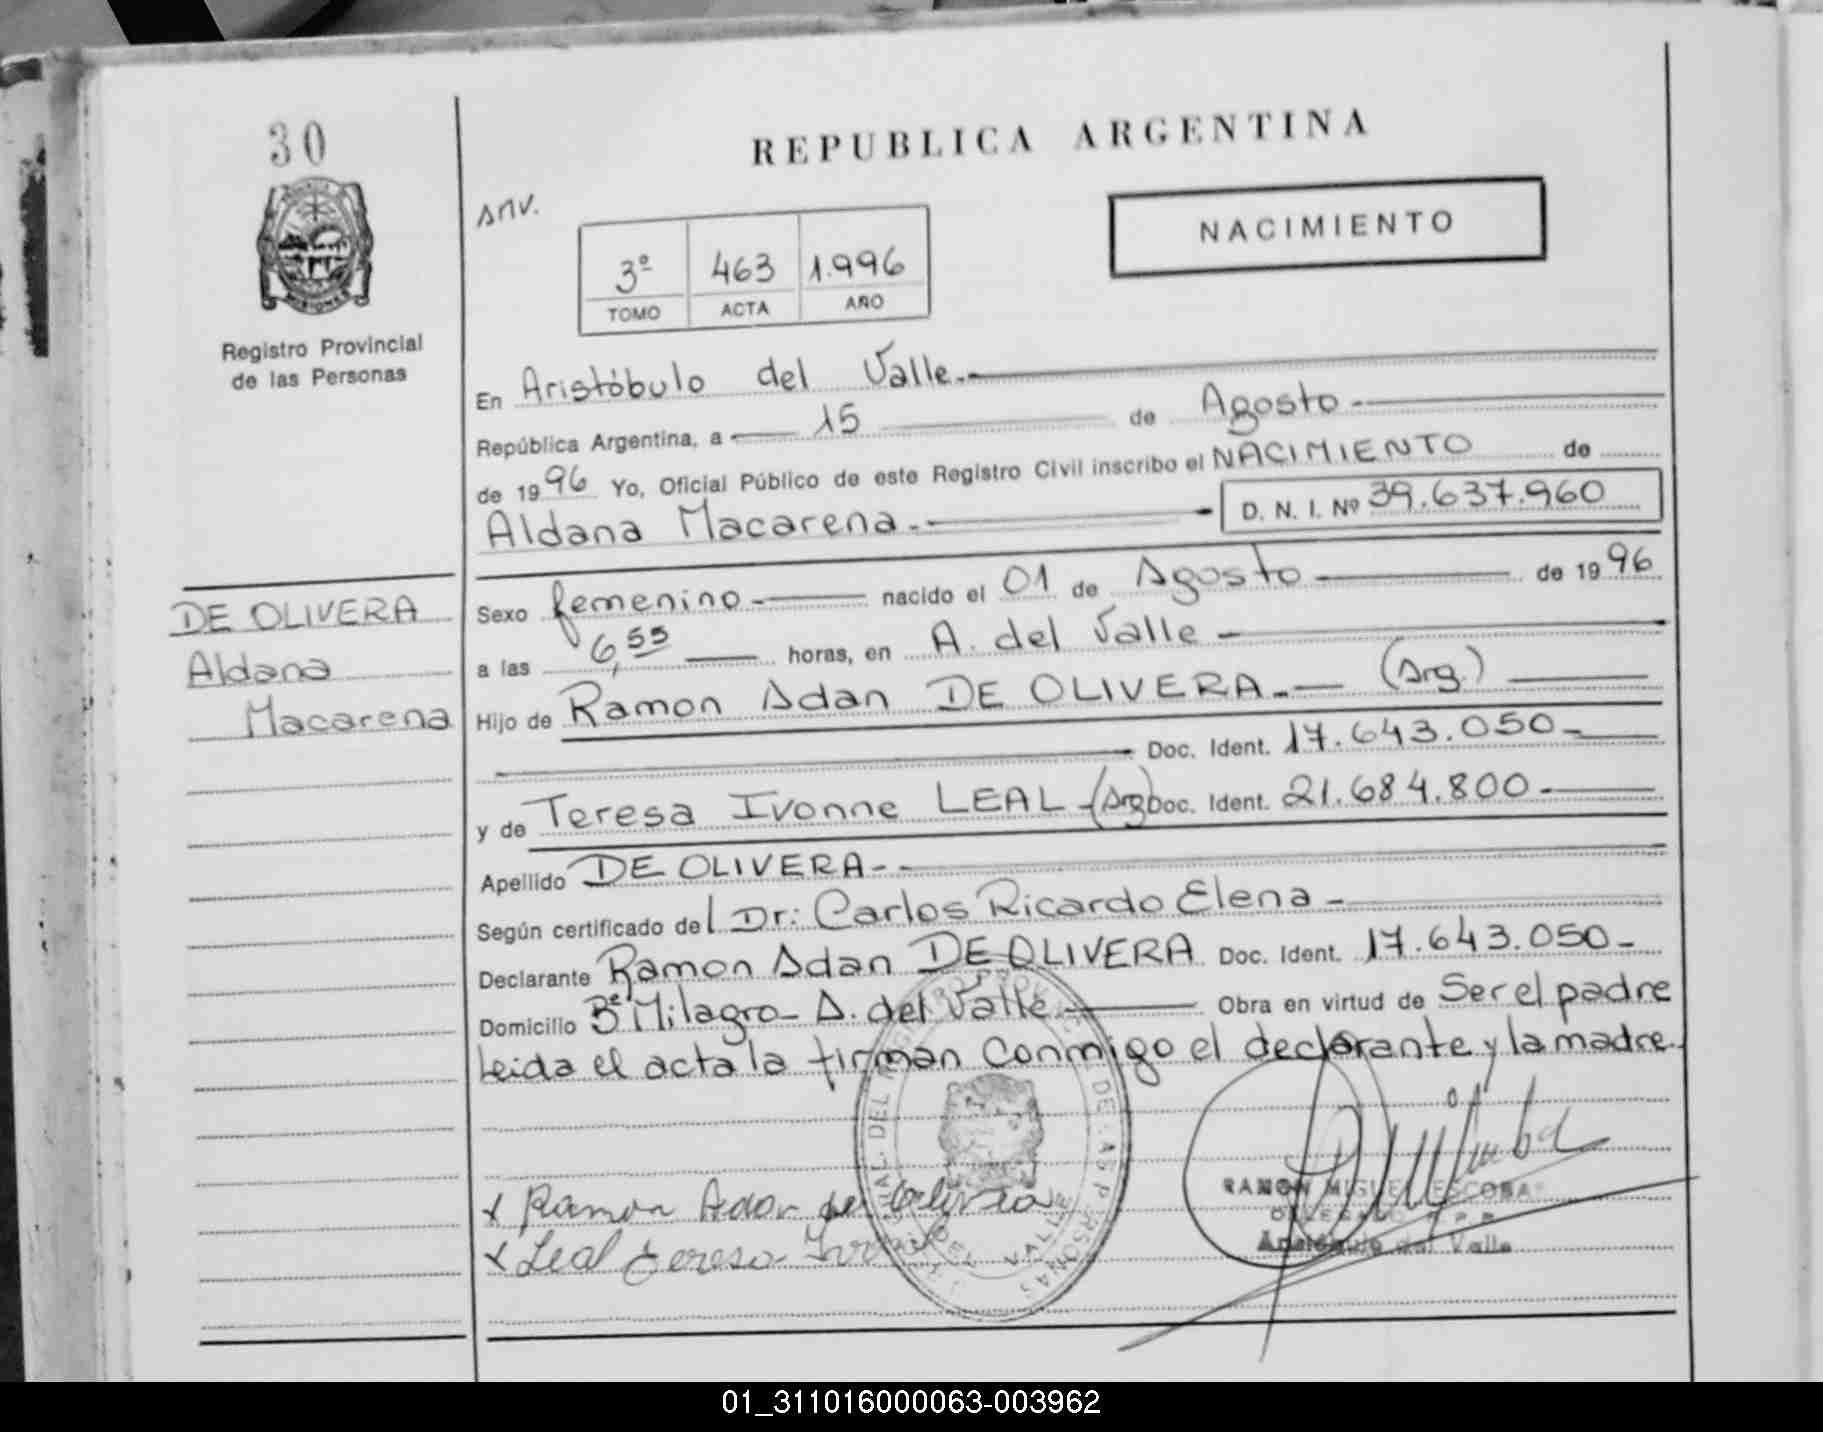 30
REPUBLICA ARGENTINA
NACIMIENTO
3º 463 1.996
TOMO ACTA AÑO
MISIONES
Registro Provincial
de las Personas
En Aristóbulo del Valle.-
República Argentina, a 15 de Agosto
de 1996 Yo, Oficial Público de este Registro Civil inscribo el NACIMIENTO de
Aldana Macarena.- D. N. I. Nº 39.637.960
DE OLIVERA
Aldana
Macarena
Sexo femenino- nacido el 01 de Agosto de 1996
a las 6,55 horas, en A. del Valle
Hijo de Ramon Adan DE OLIVERA.- (Arg.)
Doc. Ident. 17.643.050-
y de Teresa Ivonne LEAL-(Arg) Doc. Ident. 21.684.800
Apellido DE OLIVERA-
Según certificado del Dr: Carlos Ricardo Elena
Declarante Ramon Adan DE OLIVERA Doc. Ident. 17.643.050-
Domicilio Bº Milagro- A. del Valle Obra en virtud de Ser el padre
leida el acta la firman Conmigo el declarante y la madre.
x Ramon Adan de Olivera
x Leal Teresa
RAMON MIGUEL ESCOBAR
DELEGADO R.P.P.
Aristóbulo del Valle
01_311016000063-003962